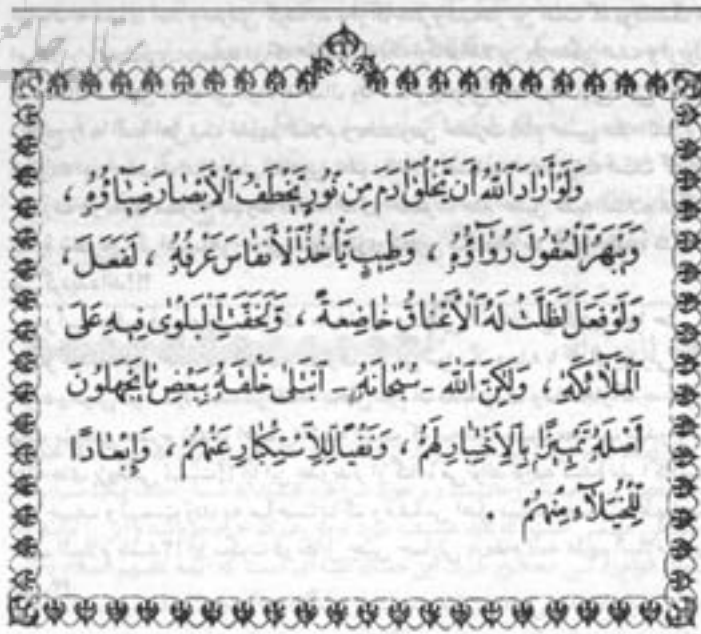 وَلَوْ أَرَادَ اللّٰهُ أَنْ يَخْلُقَ اٰدَمَ مِنْ نُورٍ يَخْطَفُ الْأَبْصَارَ ضِيَاؤُهُ ،
وَيَبْهَرُ الْعُقُولَ رُوَاؤُهُ ، وَطِيبٍ يَأْخُذُ الْأَنْفَاسَ عَرْفُهُ ، لَفَعَلَ ،
وَلَوْ فَعَلَ لَظَلَّتْ لَهُ الْأَعْنَاقُ خَاضِعَةً ، وَلَخَفَّتِ الْبَلْوٰى فِيهِ عَلَى
الْمَلَائِكَةِ ، وَلٰكِنَّ اللّٰهَ - سُبْحَانَهُ - ابْتَلٰى خَلْقَهُ بِبَعْضِ مَا يَجْهَلُونَ
أَصْلَهُ تَمْيِيزًا بِالْاِخْتِبَارِ لَهُمْ ، وَنَفْيًا لِلْاِسْتِكْبَارِ عَنْهُمْ ، وَإِبْعَادًا
لِلْخُيَلَاءِ مِنْهُمْ .